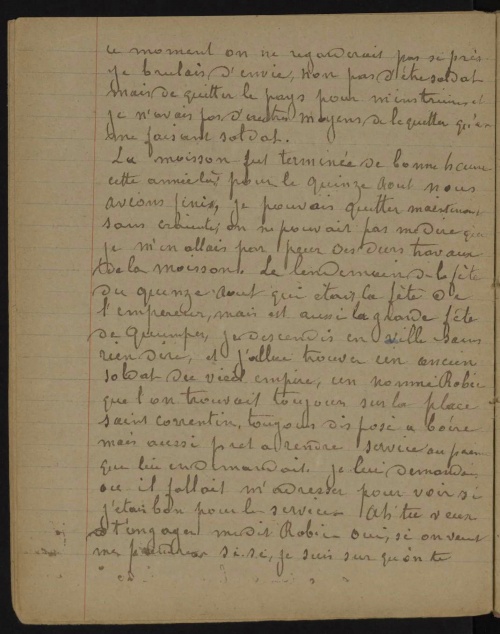 ce moment on ne regarderait pas si près
je brulais d'envie, non pas d'être soldat
mais de quitter le pays pour m'instruire, et
je n'avais pas d'autres moyens de le quitter qu'en
me faisant soldat.
La moisson fut terminée de bonne heure
cette année là, pour le quinze aout nous
avions finis, je pouvais quitter maintenant
sans crainte, on ne pouvait pas me dire que
je m'en allais par peur des durs travaux
de la moisson. Le lendemain de la fête
du quinze aout qui etait la fête de
l'empereur, mais est aussi la grande fête
de Quimper, je descendis en ville sans
rien dire, et j'allai trouver un ancien
soldat du vieil empire, un nommé Robic
que l'on trouvait toujours sur la place
saint correntin, toujours disposé a boire
mais aussi pret a rendre service au premier
qui lui en demandait. je lui demandai
ou il fallait m'adresser pour voir si
j'etais bon pour le service. Ah! tu veux
t'engager me dit Robic oui, si on veut
me prendre. si. si, je suis sur qu'on te